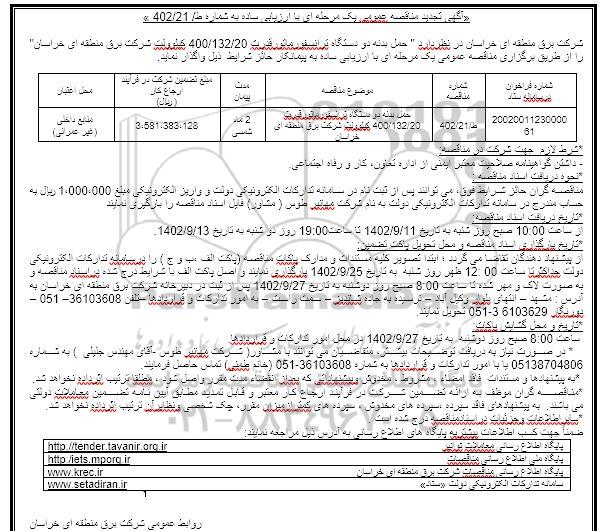 «آگهی تجدید مناقصه عمومی یک مرحله ای با ارزیابی ساده به شماره ط/ 402/21 »
شرکت برق منطقه ای خراسان در نظردارد " حمل بدنه دو دستگاه ترانسفورماتورقدرت 400/132/20 کیلوولت شرکت برق منطقه ای خراسان"
را از طریق برگزاری مناقصه عمومی یک مرحله ای با ارزیابی ساده به پیمانکار حائز شرایط ذیل واگذار نمایند.
شماره فراخوان در سامانه ستاد
شماره مناقصه
موضوع مناقصه
مدت پیمان
مبلغ تضمین شرکت در فرآیند ارجاع کار (ریال)
محل اعتبار
2002001123000061
ط/402/21
حمل بدنه دو دستگاه ترانسفورماتورقدرت 400/132/20 کیلوولت شرکت برق منطقه ای خراسان
2 ماه شمسی
3،581،383،128
منابع داخلی (غیر عمرانی)
*شرط لازم جهت شرکت در مناقصه:
- داشتن گواهینامه صلاحیت معتبر ایمنی از اداره تعاون، کار و رفاه اجتماعی.
*نحوه دریافت اسناد مناقصه :
مناقصه گران حائز شرایط فوق، می توانند پس از ثبت نام در سامانه تدارکات الکترونیکی دولت و واریز الکترونیکی مبلغ 1،000،000 ریال به
حساب مندرج در سامانه تدارکات الکترونیکی دولت به نام شرکت مهانیر طوس ( مشاور) فایل اسناد مناقصه را بارگیری نمایند
*تاریخ دریافت اسناد مناقصه:
از ساعت 10:00 صبح روز شنبه به تاریخ 1402/9/11 تا ساعت19:00 روز دو شنبه به تاریخ 1402/9/13
*تاریخ بارگذاری اسناد مناقصه و محل تحویل پاکت تضمین:
از پیشنهاد دهندگان تقاضا می گردد ؛ ابتدا تصویر کلیه مستندات و مدارک پاکات مناقصه (پاکت الف ،ب و ج ) را در سامانه تدارکات الکترونیکی
دولت حداکثر تا ساعت 12: 00 ظهر روز شنبه به تاریخ 1402/9/25 بارگذاری نمایند و اصل پاکت الف با شرایط درج شده در اسناد مناقصه و
به صورت لاک و مهر شده تا ساعت 8:00 صبح روز دوشنبه به تاریخ 1402/9/27 پس از ثبت در دبیرخانه شرکت برق منطقه ای خراسان به
آدرس : مشهد – انتهای بلوار وکیل آباد – نرسیده به جاده شاندیز – سمت راست – به امور تدارکات و قراردادها –تلفن 36103608– 051 –
دورنگار 6103629 3-051 تحویل نمایند.
*تاریخ و محل گشایش پاکات:
ساعت 8:00 صبح روز دوشنبه به تاریخ 1402/9/27 در محل امور تدارکات و قراردادها
* در صورت نیاز به دریافت توضیحات بیشتر، متقاضیان می توانند با مشاور( شرکت مهانیر طوس -آقای مهندس جلیلی ) به شماره
05138704806 یا با امور تدارکات و قراردادها به شماره 36103608-051 (خانم طهنی) تماس حاصل فرمایند.
*به پیشنهادها و مستندات فاقد امضاء ، مشروط ، مخدوش و پیشنهاداتی که بعد از انقضاء مدت مقرر واصل شود ، مطلقا ترتیب اثر داده نخواهد شد.
*مناقصه گران موظف به ارائه تضمین شرکت در فرآیند ارجاع کار معتبر و قابل تمدید مطابق آیین نامه تضمین معاملات دولتی
می باشند. به پیشنهادهای فاقد سپرده ،سپرده های مخدوش ، سپرده های کمتر ازمیزان مقرر، چک شخصی ونظایر آن ترتیب اثر داده نخواهد شد.
*سایر اطلاعات و جزئیات در اسنادمناقصه درج شده است.
ضمناً جهت کسب اطلاعات بیشتر به پایگاه های اطلاع رسانی به آدرس ذیل مراجعه نمایند:
پایگاه اطلاع رسانی معاملات توانیر http://tender.tavanir.org.ir
پایگاه ملی اطلاع رسانی مناقصات http://iets.mporg.ir
پایگاه اطلاع رسانی مناقصات شرکت برق منطقه ای خراسان www.krec.ir
سامانه تدارکات الکترونیکی دولت «ستاد» www.setadiran.ir
روابط عمومی شرکت برق منطقه ای خراسان